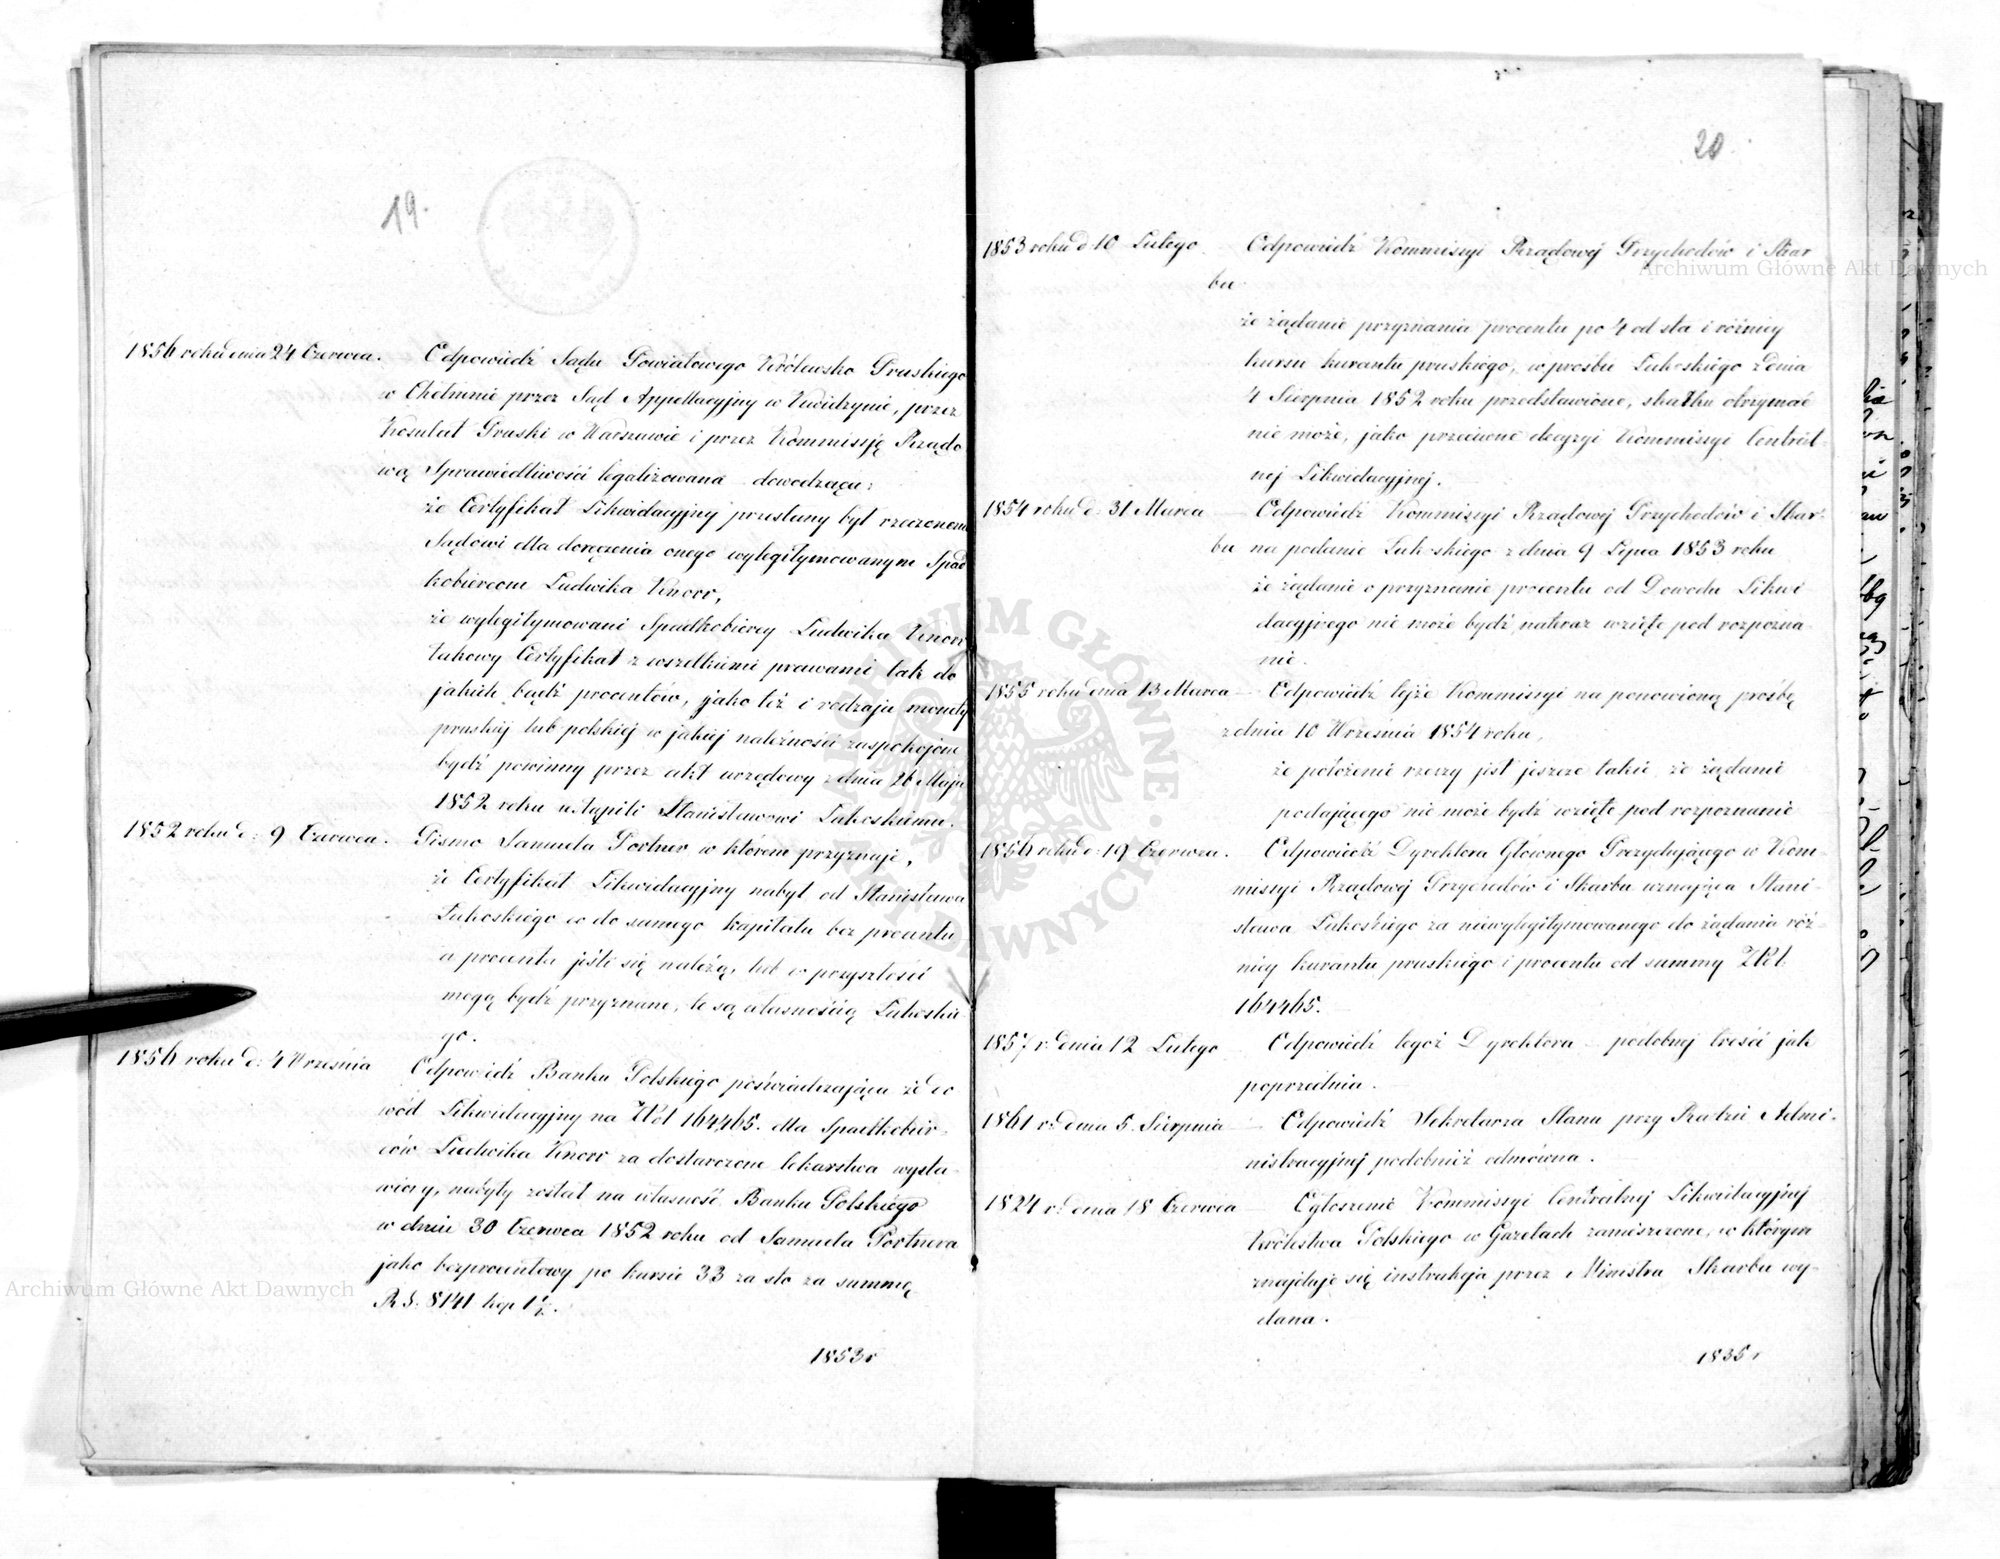 19.
1856 roku dnia 24 Czerwca. Odpowiedź Sądu Powiatowego Królewsko Pruskiego
w Chełmnie przez Sąd Appellacyjny w Kwidzynie, przez
Konsulat Pruski w Warszawie i przez Kommissję Rządo
wą Sprawiedliwości legalizowana dowodząca:
że Certyfikat Likwidacyjny przesłany był rzeczonemu
Sądowi dla doręczenia onego wylegitymowanym Spad
kobiercom Ludwika Knorr,
że wylegitymowani Spadkobiercy Ludwika Knorr
takowy Certyfikat z wszelkiemi prawami tak do
jakich bądź procentów, jako też i rodzaju monety
pruskiej lub polskiej w jakiej należności zaspokojone
bydź powinny przez akt urzędowy z dnia 26 Maja
1852 roku ustąpili Stanisławowi Łukoskiemu.
1852 roku d: 9 Czerwca. Pismo Samuela Portner w którem przyznaje,
że Certyfikat Likwidacyjny nabył od Stanisława
Łukoskiego co do samego kapitału bez procentu
a procenta jeśli się należą, lub w przyszłości
mogą bydź przyznane, te są własnością Łukoskie
go.
1856 roku d: 4 Września Odpowiedź Banku Polskiego poświadczająca że do
wód Likwidacyjny na ZłPol 164,465. dla Spadkobier-
ców Ludwika Knorr za dostarczone lekarstwa wysta-
wiony, nabyty został na własność Banku Polskiego
w dniu 30 Czerwca 1852 roku od Samuela Portnera
jako bezprocentowy po kursie 33 za sto za summę
R.S. 8141 kop 1½.
1853 r
20.
1853 roku d 10 Lutego Odpowiedź Kommissyi Rządowej Przychodów i Skar
bu
że żądanie przyznania procentu po 4 od sta i różnicy
kursu kurantu pruskiego, w prośbie Łukoskiego z dnia
4 Sierpnia 1852 roku przedstawione, skutku otrzymać
nie może, jako przeciwne decyzyi Kommissyi Central-
nej Likwidacyjnej.
1854 roku d: 31 Marca Odpowiedź Kommissyi Rządowej Przychodów i Skar-
bu na podanie Łukoskiego z dnia 9 Lipca 1853 roku
że żądanie o przyznanie procentu od Dowodu Likwi
dacyjnego nie może bydź nateraz wzięte pod rozpozna-
nie.
1855 roku dnia 13 Marca Odpowiedź tejże Kommissyi na ponowioną prośbę
z dnia 10 Września 1854 roku,
że położenie rzeczy jest jeszcze takie, że żądanie
podającego nie może bydź wzięte pod rozpoznanie
1856 roku d: 19 Czerwca. Odpowiedź Dyrektora Głównego Prezydującego w Kom-
missyi Rządowej Przychodów i Skarbu uznająca Stani-
sława Łukoskiego za niewylegitymowanego do żądania róż-
nicy kurantu pruskiego i procentu od summy ZłPol.
164465.
1857 r. dnia 12 Lutego Odpowiedź tegoż Dyrektora podobnej treści jak
poprzednia.
1861 r. dnia 5. Sierpnia Odpowiedź Sekretarza Stanu przy Radzie Admi-
nistracyjnej podobnież odmówna.
1824 r. dnia 18 Czerwca Ogłoszenie Kommissyi Centralnej Likwidacyjnej
Królestwa Polskiego w Gazetach zamieszczone, w którym
znajduje się instrukcja przez Ministra Skarbu wy-
dana.
1835 r
Archiwum Główne Akt Dawnych
Archiwum Główne Akt Dawnych
ARCHIWUM GŁÓWNE AKT DAWNYCH